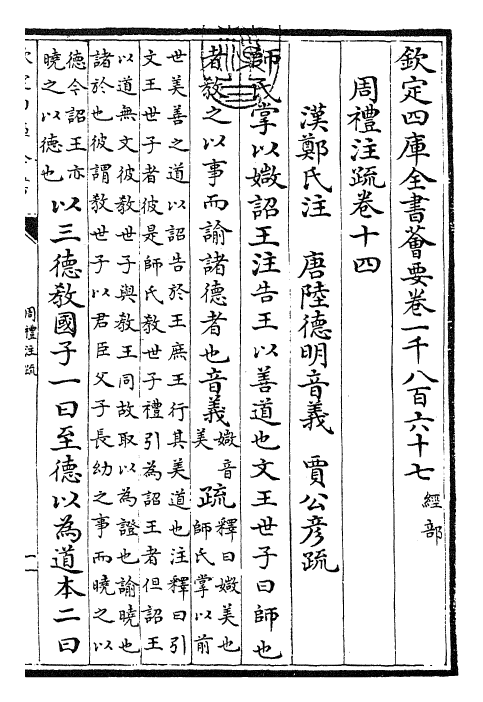 欽定四庫全書薈要卷一千八百六十七 經部
周禮注疏卷十四
漢鄭氏注 唐陸德明音義 賈公彦疏
師氏掌以媺詔王注告王以善道也文王世子曰師也
者教之以事而諭諸德者也音義媺音美疏釋曰媺美也師氏掌以前
世美善之道以詔告於王庶王行其美道也注釋曰引
文王世子者彼是師氏教世子禮引為詔王者但詔王
以道無文彼教世子與教王同故取以為證也諭曉也
諸於也彼謂教世子以君臣父子長幼之事而曉之以
德今詔王亦
曉之以德也
以三德教國子一曰至德以為道本二曰
周禮注疏
一